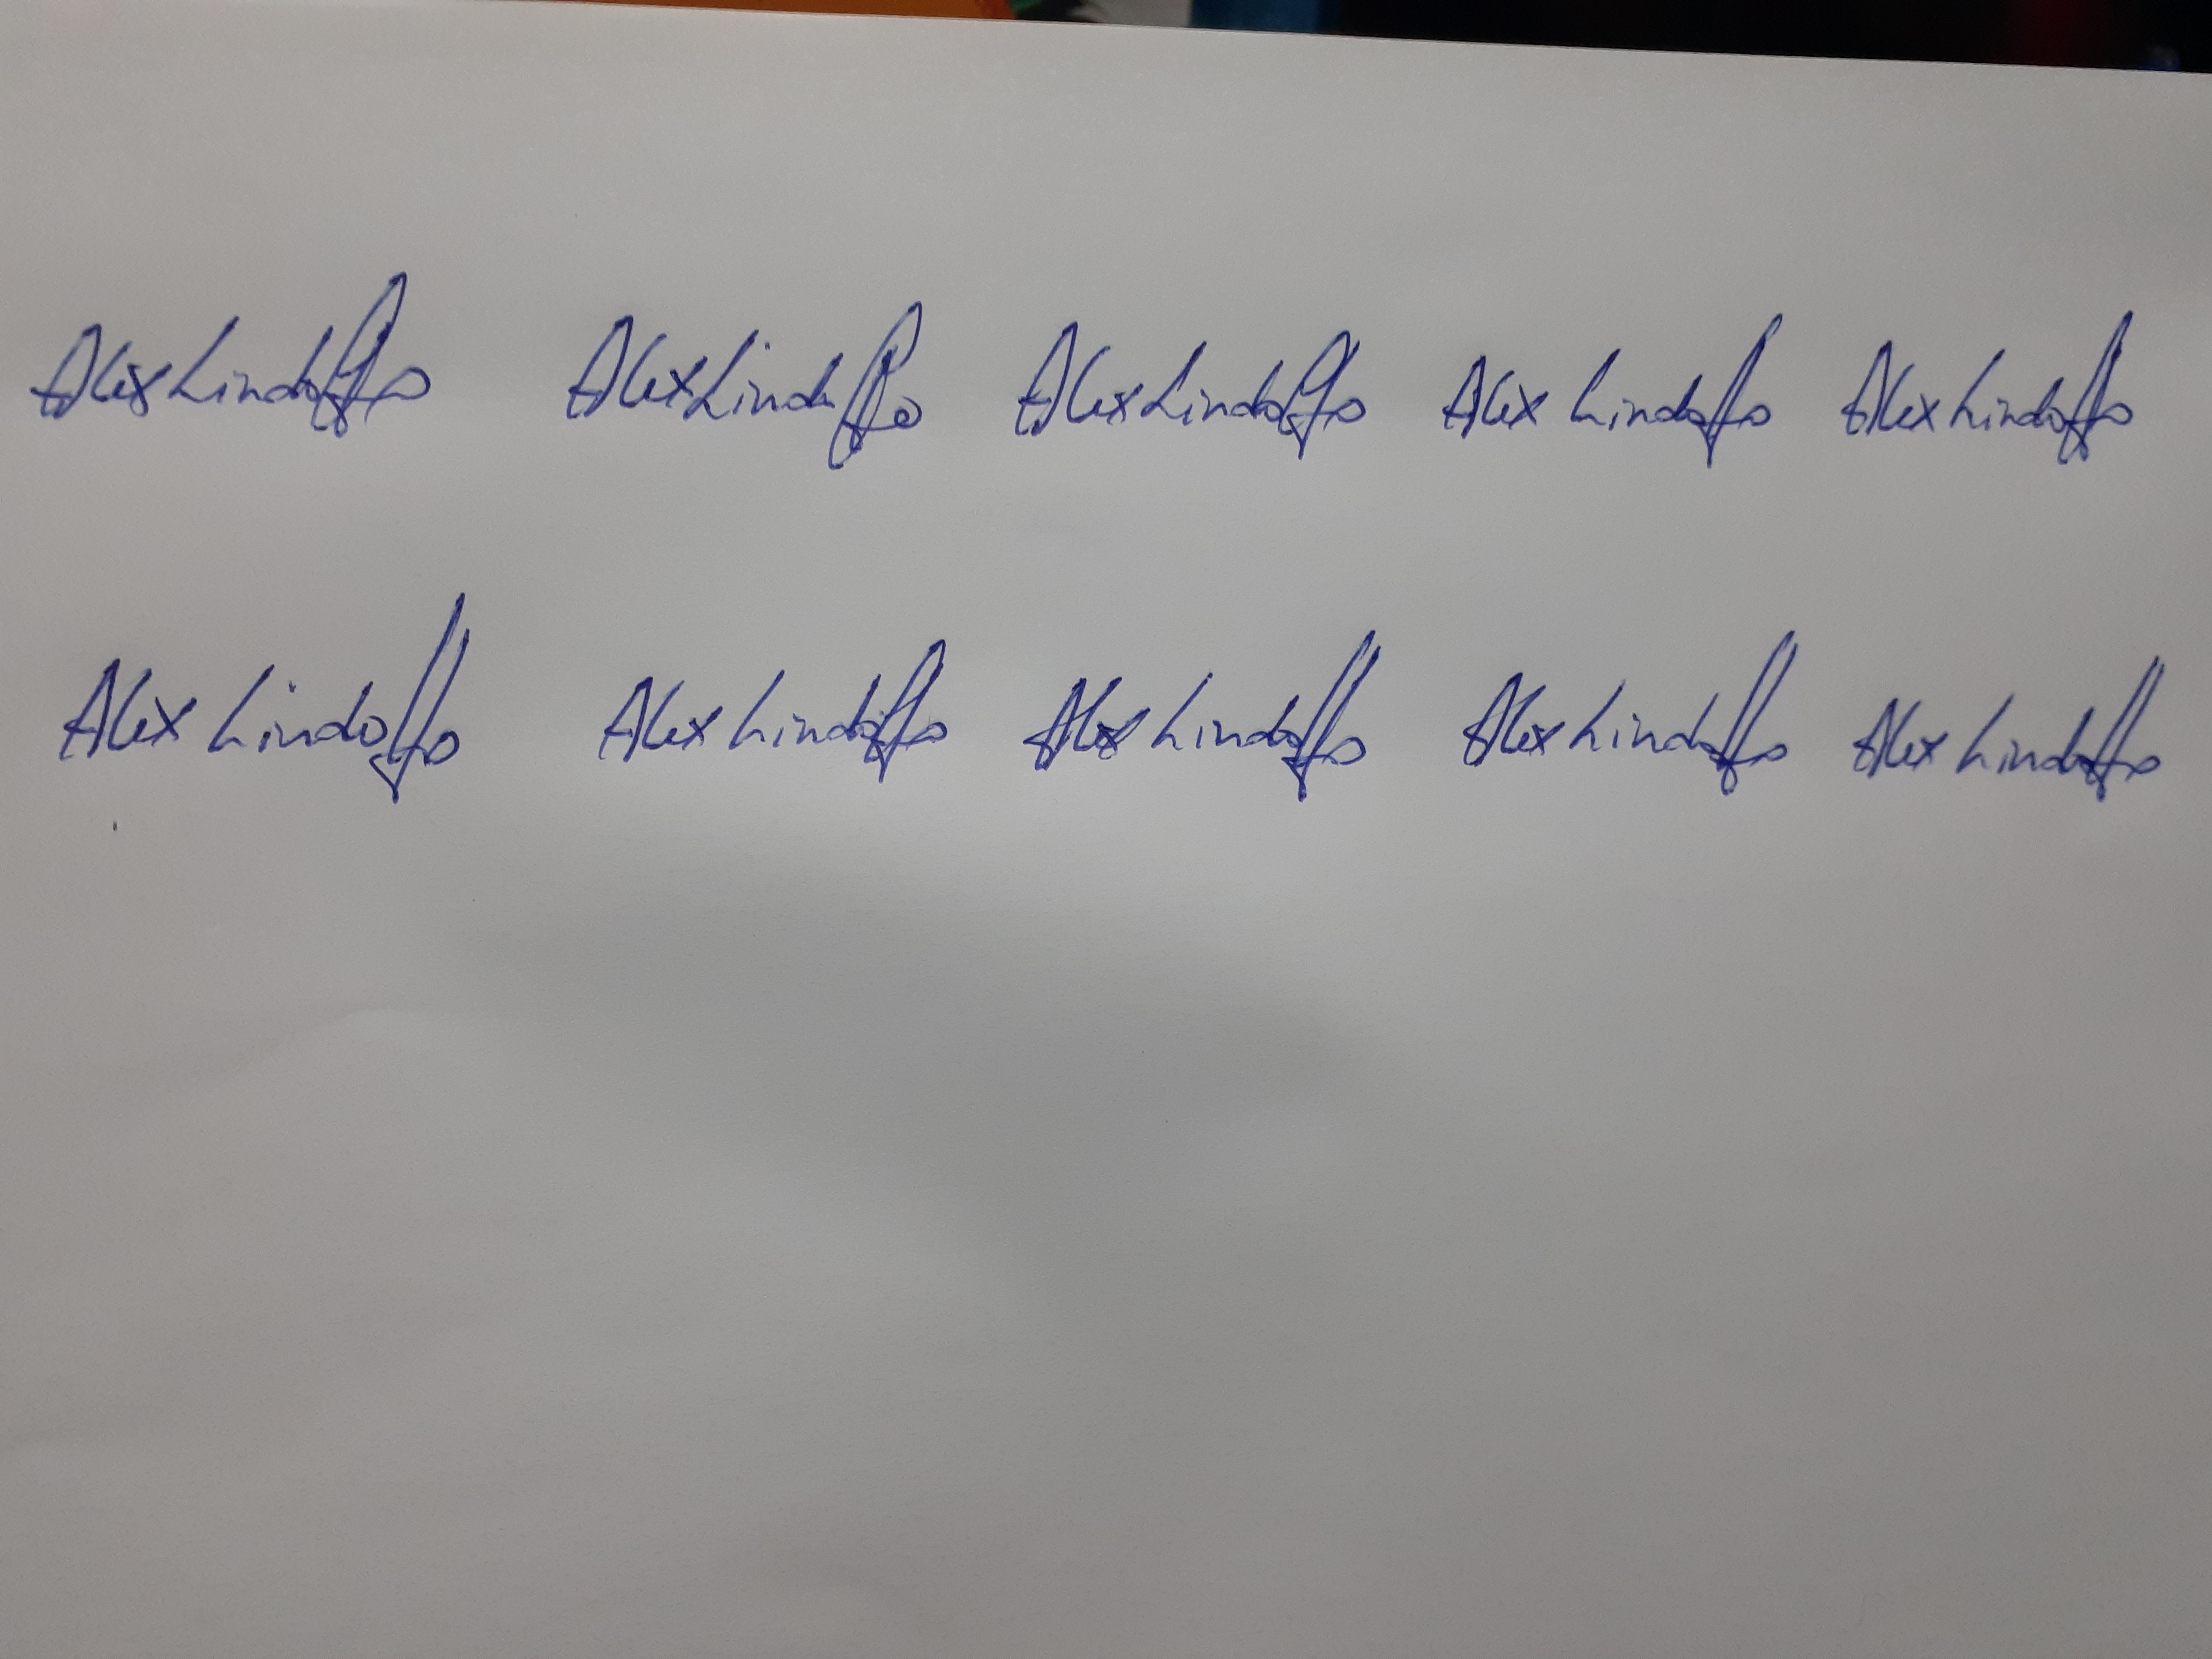 Alex Lindolfo Alex Lindolfo Alex Lindolfo Alex Lindolfo Alex Lindolfo
Alex Lindolfo Alex Lindolfo Alex Lindolfo Alex Lindolfo Alex Lindolfo